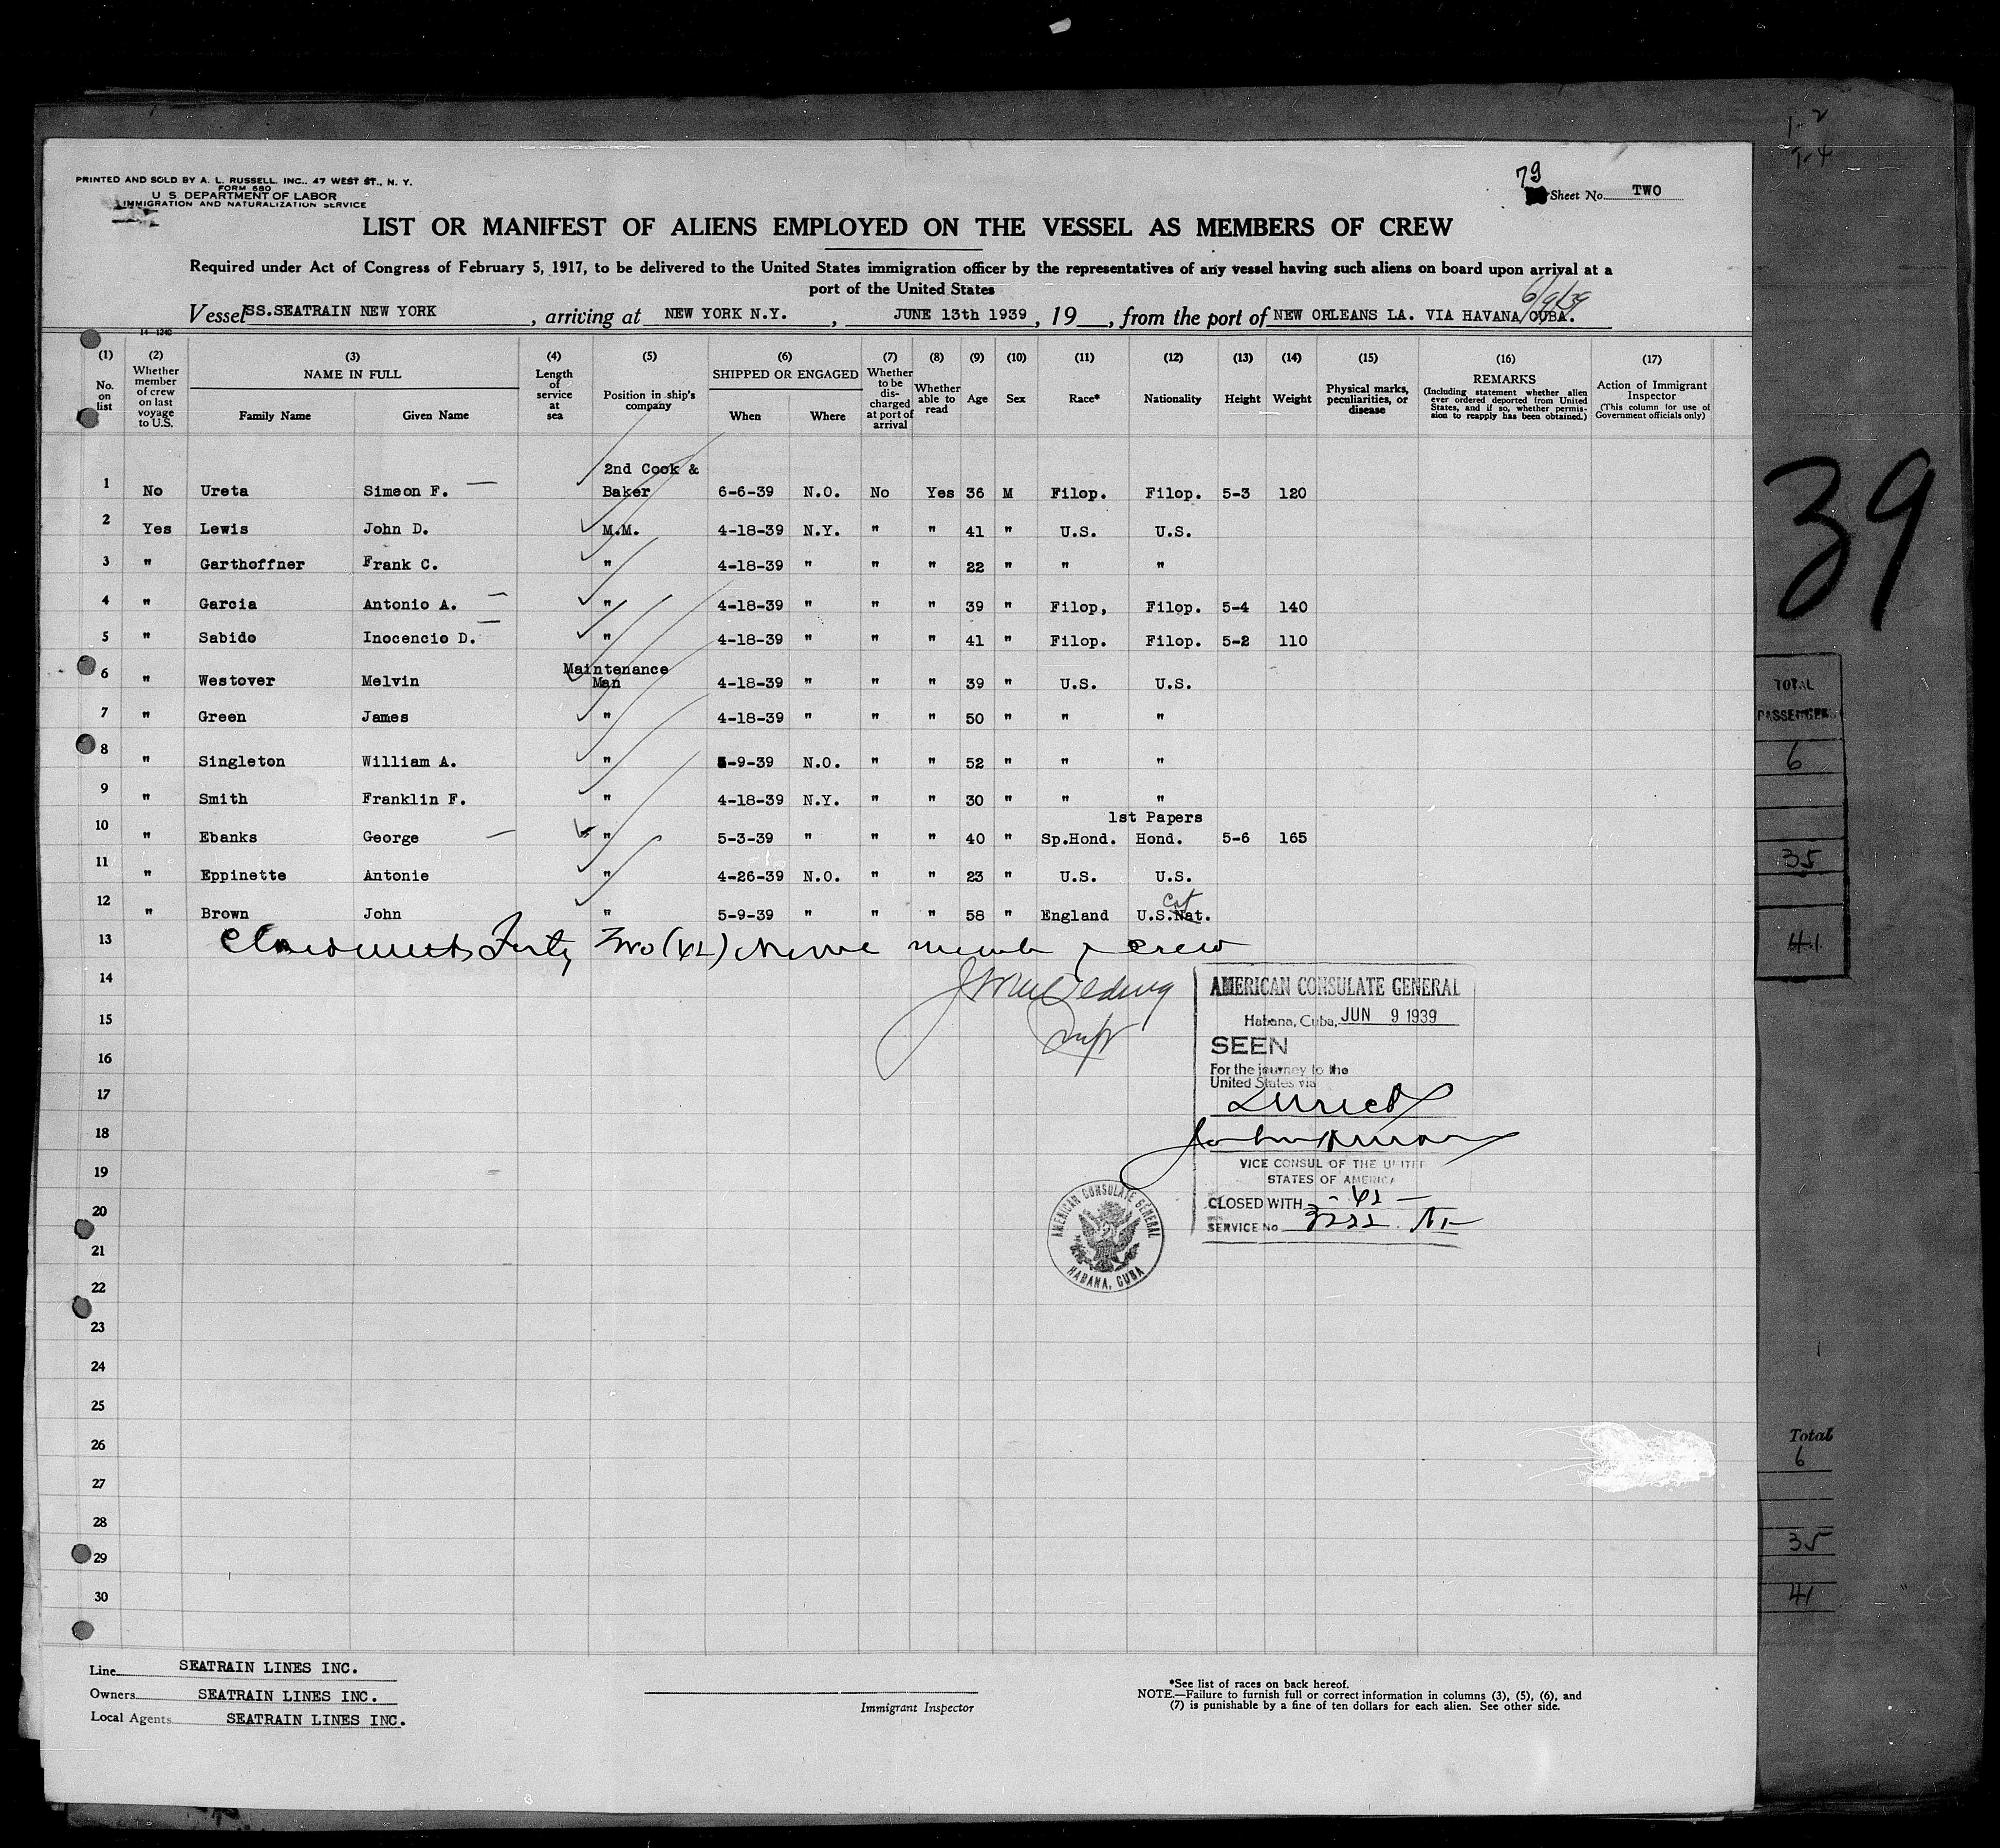 1-2
1-4
PRINTED AND SOLD BY A. L. RUSSELL, INC., 47 WEST ST., N. Y.
FORM 680
U. S. DEPARTMENT OF LABOR
IMMIGRATION AND NATURALIZATION SERVICE
79
Sheet No. TWO
LIST OR MANIFEST OF ALIENS EMPLOYED ON THE VESSEL AS MEMBERS OF CREW
Required under Act of Congress of February 5, 1917, to be delivered to the United States immigration officer by the representatives of any vessel having such aliens on board upon arrival at a
port of the United States
6/9/39
Vessel SS.SEATRAIN NEW YORK, arriving at NEW YORK N.Y., JUNE 13th 1939, 19, from the port of NEW ORLEANS LA. VIA HAVANA CUBA.
14-1240
(1) No. on list
(2) Whether member of crew on last voyage to U.S.
(3) NAME IN FULL Family Name Given Name
(4) Length of service at sea
(5) Position in ship's company
(6) SHIPPED OR ENGAGED When Where
(7) Whether to be discharged at port of arrival
(8) Whether able to read
(9) Age
(10) Sex
(11) Race*
(12) Nationality
(13) Height
(14) Weight
(15) Physical marks, peculiarities, or disease
(16) REMARKS (Including statement whether alien ever ordered deported from United States, and if so, whether permission to reapply has been obtained.)
(17) Action of Immigrant Inspector (This column for use of Government officials only)
2nd Cook &
1 No Ureta Simeon F. — Baker 6-6-39 N.O. No Yes 36 M Filop. Filop. 5-3 120
2 Yes Lewis John D. M.M. 4-18-39 N.Y. " " 41 " U.S. U.S.
3 " Garthoffner Frank C. " 4-18-39 " " " 22 " " "
4 " Garcia Antonio A. — " 4-18-39 " " " 39 " Filop, Filop. 5-4 140
5 " Sabido Inocencio D. — " 4-18-39 " " " 41 " Filop. Filop. 5-2 110
Maintenance
6 " Westover Melvin Man 4-18-39 " " " 39 " U.S. U.S.
7 " Green James " 4-18-39 " " " 50 " " "
8 " Singleton William A. " 5-9-39 N.O. " " 52 " " "
9 " Smith Franklin F. " 4-18-39 N.Y. " " 30 " " "
1st Papers
10 " Ebanks George — " 5-3-39 " " " 40 " Sp.Hond. Hond. 5-6 165
11 " Eppinette Antonie " 4-26-39 N.O. " " 23 " U.S. U.S.
12 " Brown John " 5-9-39 " " " 58 " England U.S.Nat.
13 Forty Two (42) crew
14
15
16
17
18
19
20
21
22
23
24
25
26
27
28
29
30
AMERICAN CONSULATE GENERAL
Habana, Cuba, JUN 9 1939
SEEN
For the journey to the
United States via
Direct
VICE CONSUL OF THE UNITED
STATES OF AMERICA
CLOSED WITH - 42 -
SERVICE No
AMERICAN CONSULATE GENERAL
HABANA, CUBA
39
TOTAL
PASSENGERS
6
35
41
Total
6
35
41
Line SEATRAIN LINES INC.
Owners SEATRAIN LINES INC.
Local Agents SEATRAIN LINES INC.
Immigrant Inspector
*See list of races on back hereof.
NOTE.—Failure to furnish full or correct information in columns (3), (5), (6), and
(7) is punishable by a fine of ten dollars for each alien. See other side.